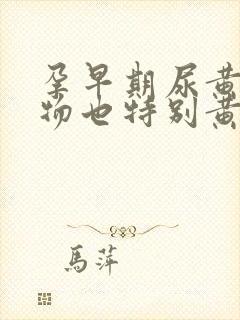 孕早期尿黄
物也特别黄
馬萍